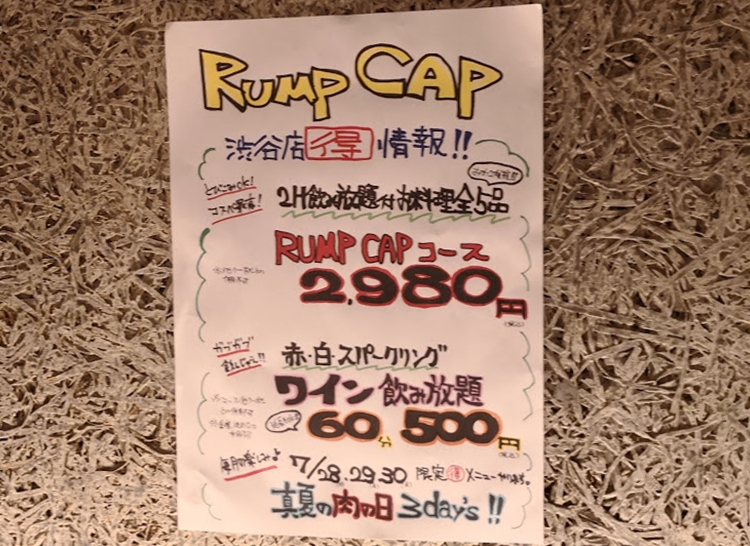 RUMP CAP
渋谷店 得 情報!!
とびこみok!
コスパ最高!
2H飲み放題付 お料理全5品
RUMP CAP コース
2,980円
(税込)
ガブガブ
飲んじゃう!!
赤・白・スパークリング
ワイン 飲み放題
60分 500円
(税込)
毎月の楽しみ♪
7/28.29.30 限定 得 メニューやります。
真夏の肉の日 3day's !!